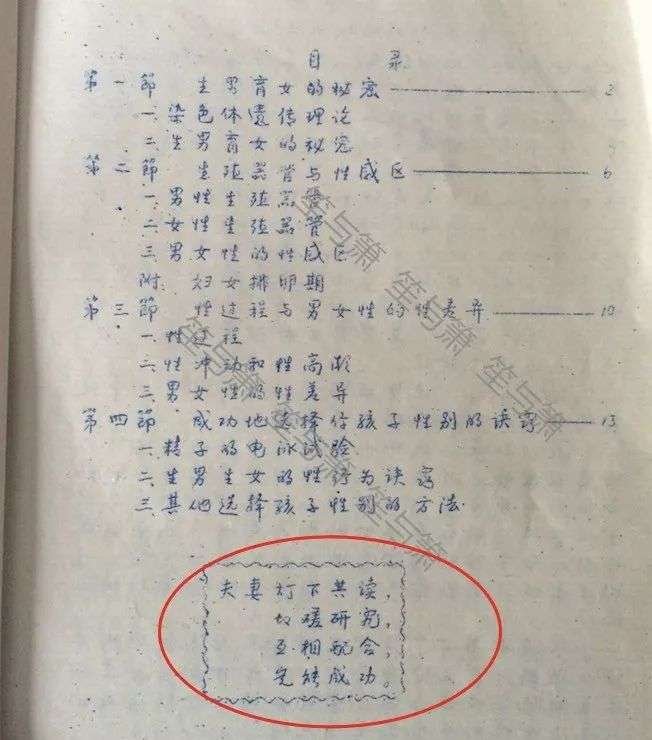 目 录
第一節 生男育女的秘密 2
一.染色体遗传理论
二.生男育女的秘密
第二節 生殖器官与性感区 6
一.男性生殖器官
二.女性生殖器官
三.男女性的性感区
附: 妇女排卵期
第三節 性过程与男女性的性差异 10
一.性过程
二.性冲动和性高潮
三.男女性的性差异
第四節 成功地选择你孩子性别的诀窍 13
一.精子的电泳试验
二.生男生女的性行为诀窍
三.其他选择孩子性别的方法.
夫妻灯下共读,
切磋研究,
互相配合,
定能成功。
笙与箫 笙与箫 笙与箫
笙与箫 笙与箫 笙与箫